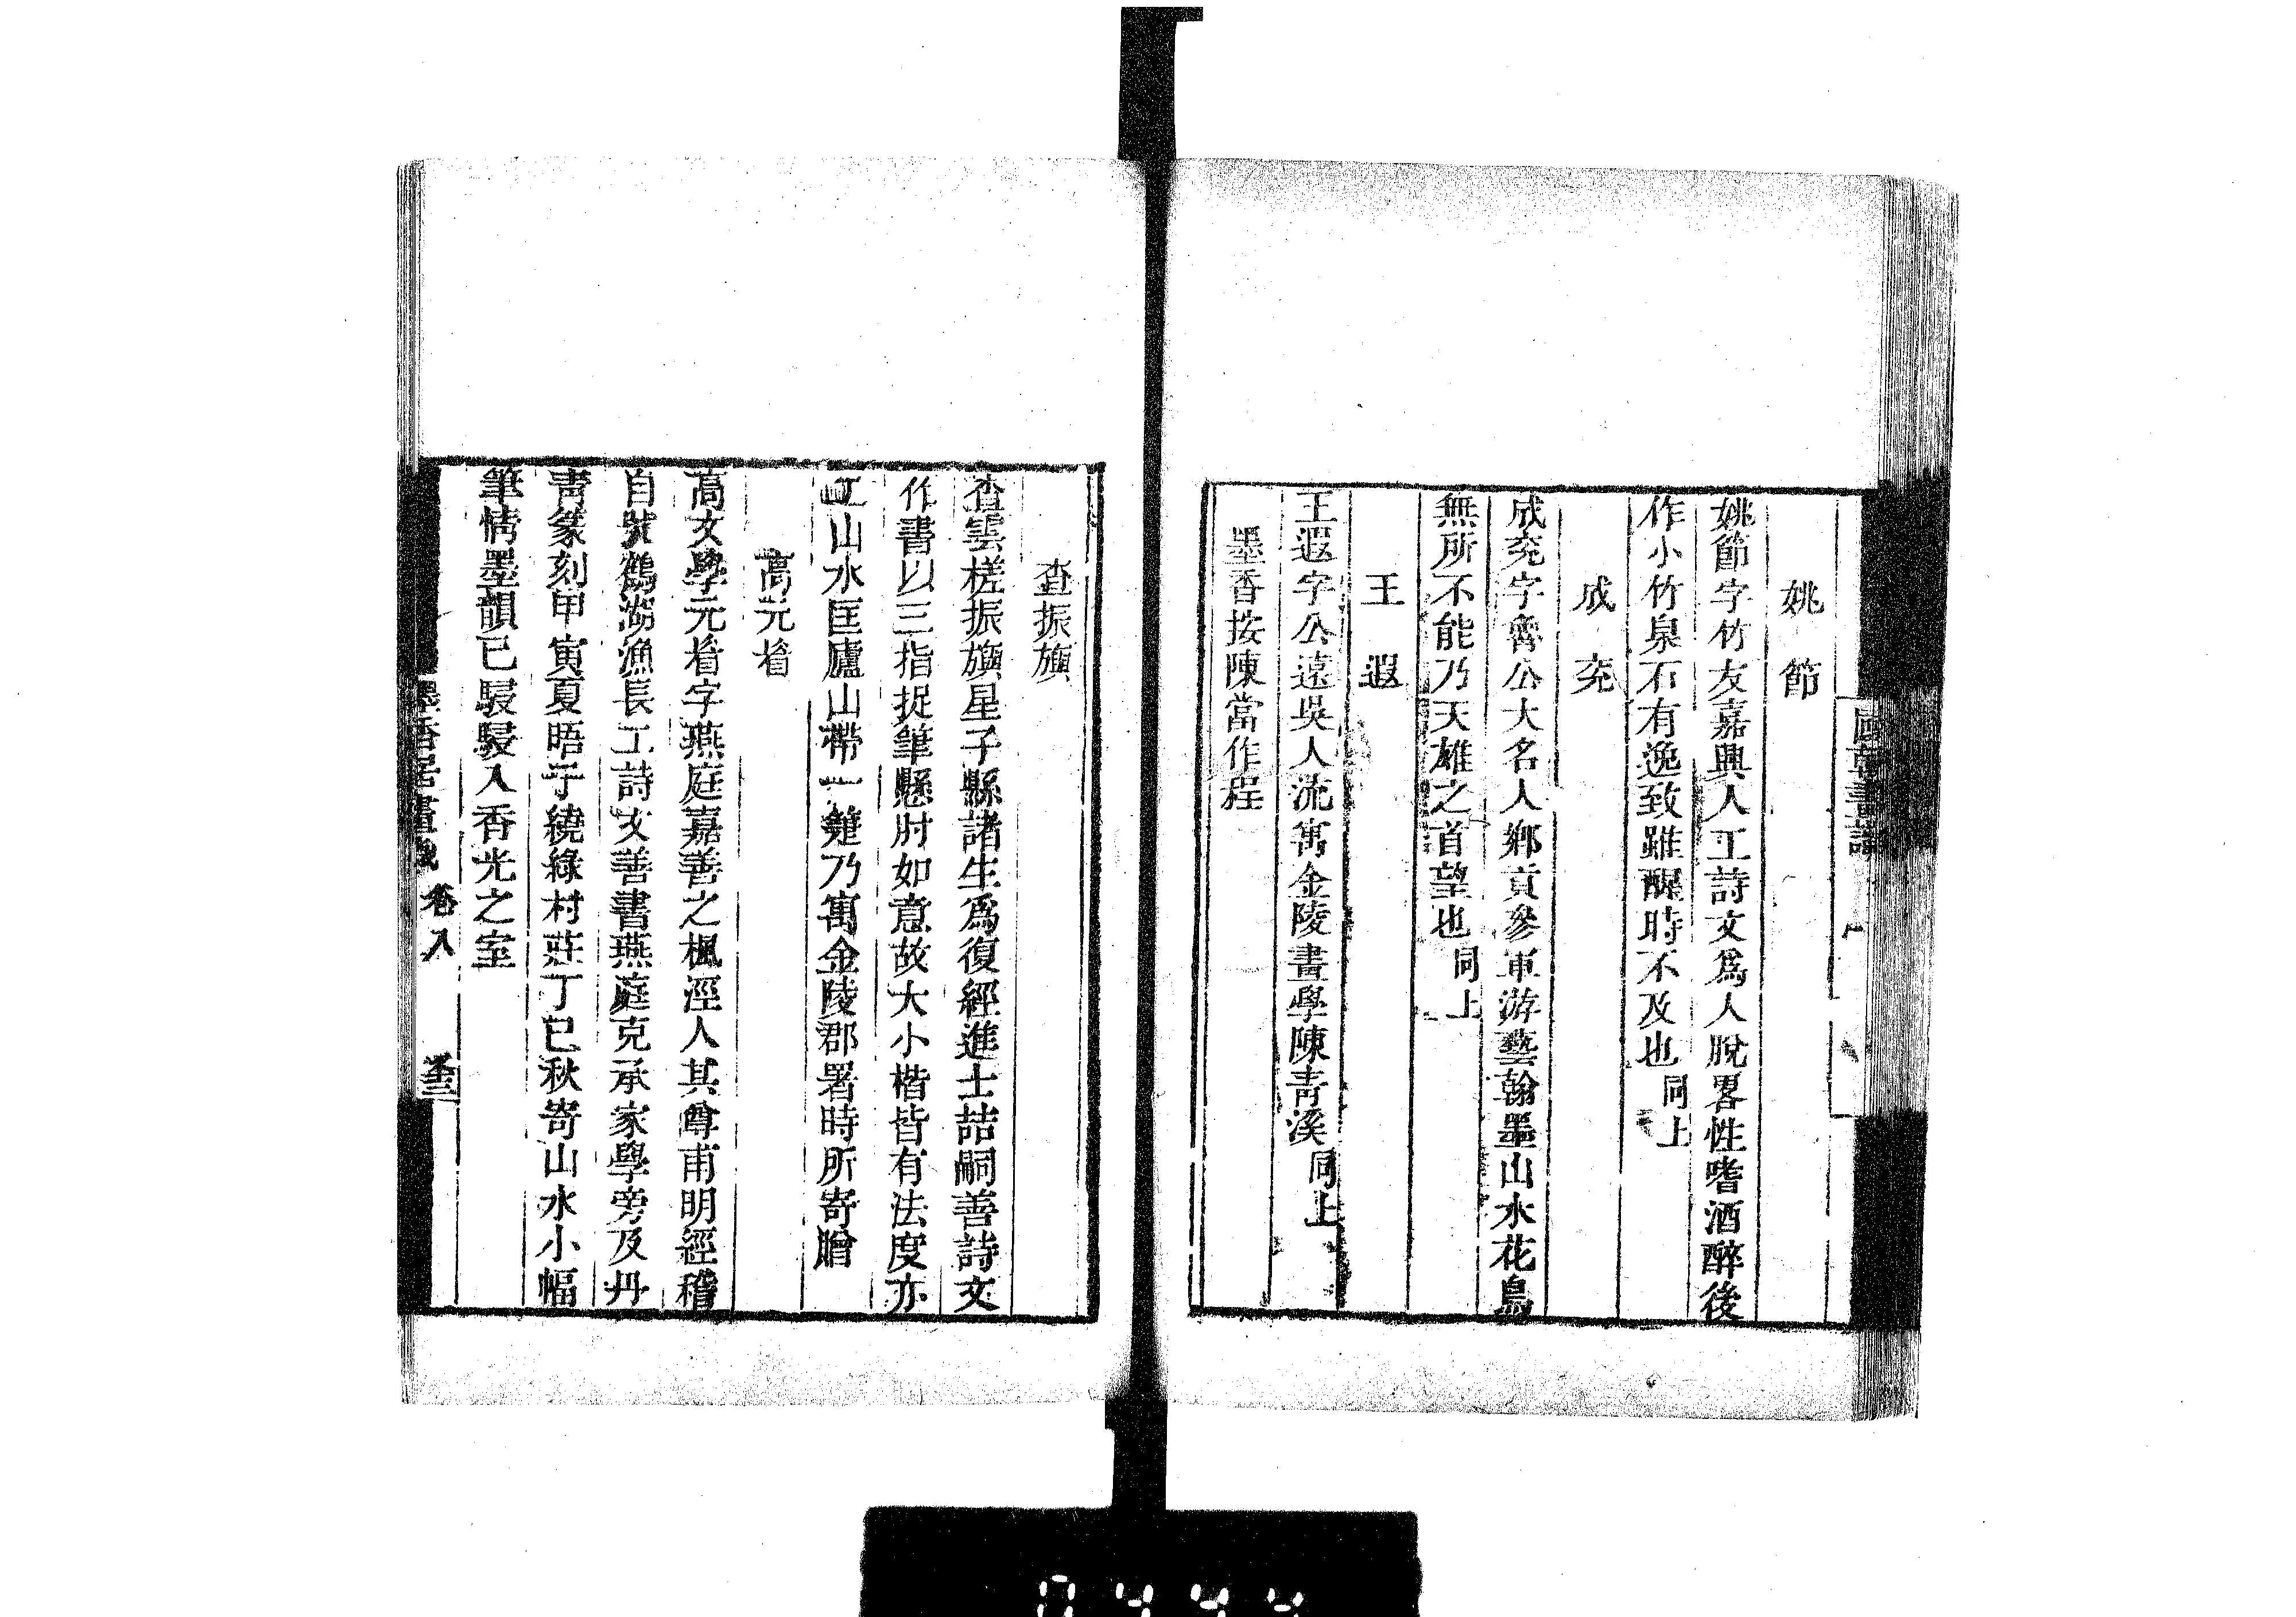 姚節
姚節字竹友嘉興人工詩文爲人脫畧性嗜酒醉後
作小竹泉石有逸致雖醒時不及也同上
成兖
成兖字魯公大名人鄉貢參軍游藝翰墨山水花鳥
無所不能乃天雄之首望也同上
王遐
王遐字公遠吳人流寓金陵畫學陳青溪同上
墨香按陳當作程
查振旟
查雲槎振旟星子縣諸生爲復經進士喆嗣善詩文
作書以三指捉筆懸肘如意故大小楷皆有法度亦
工山水匡廬山帶一箑乃寓金陵郡署時所寄贈
高元㫺
高文學元㫺字燕庭嘉善之楓涇人其尊甫明經稽
自號鶴湖漁長工詩文善書燕庭克承家學旁及丹
青篆刻甲寅夏晤于繞綠村莊丁巳秋寄山水小幅
筆情墨韻已駸駸入香光之室
墨香居畫識 卷八